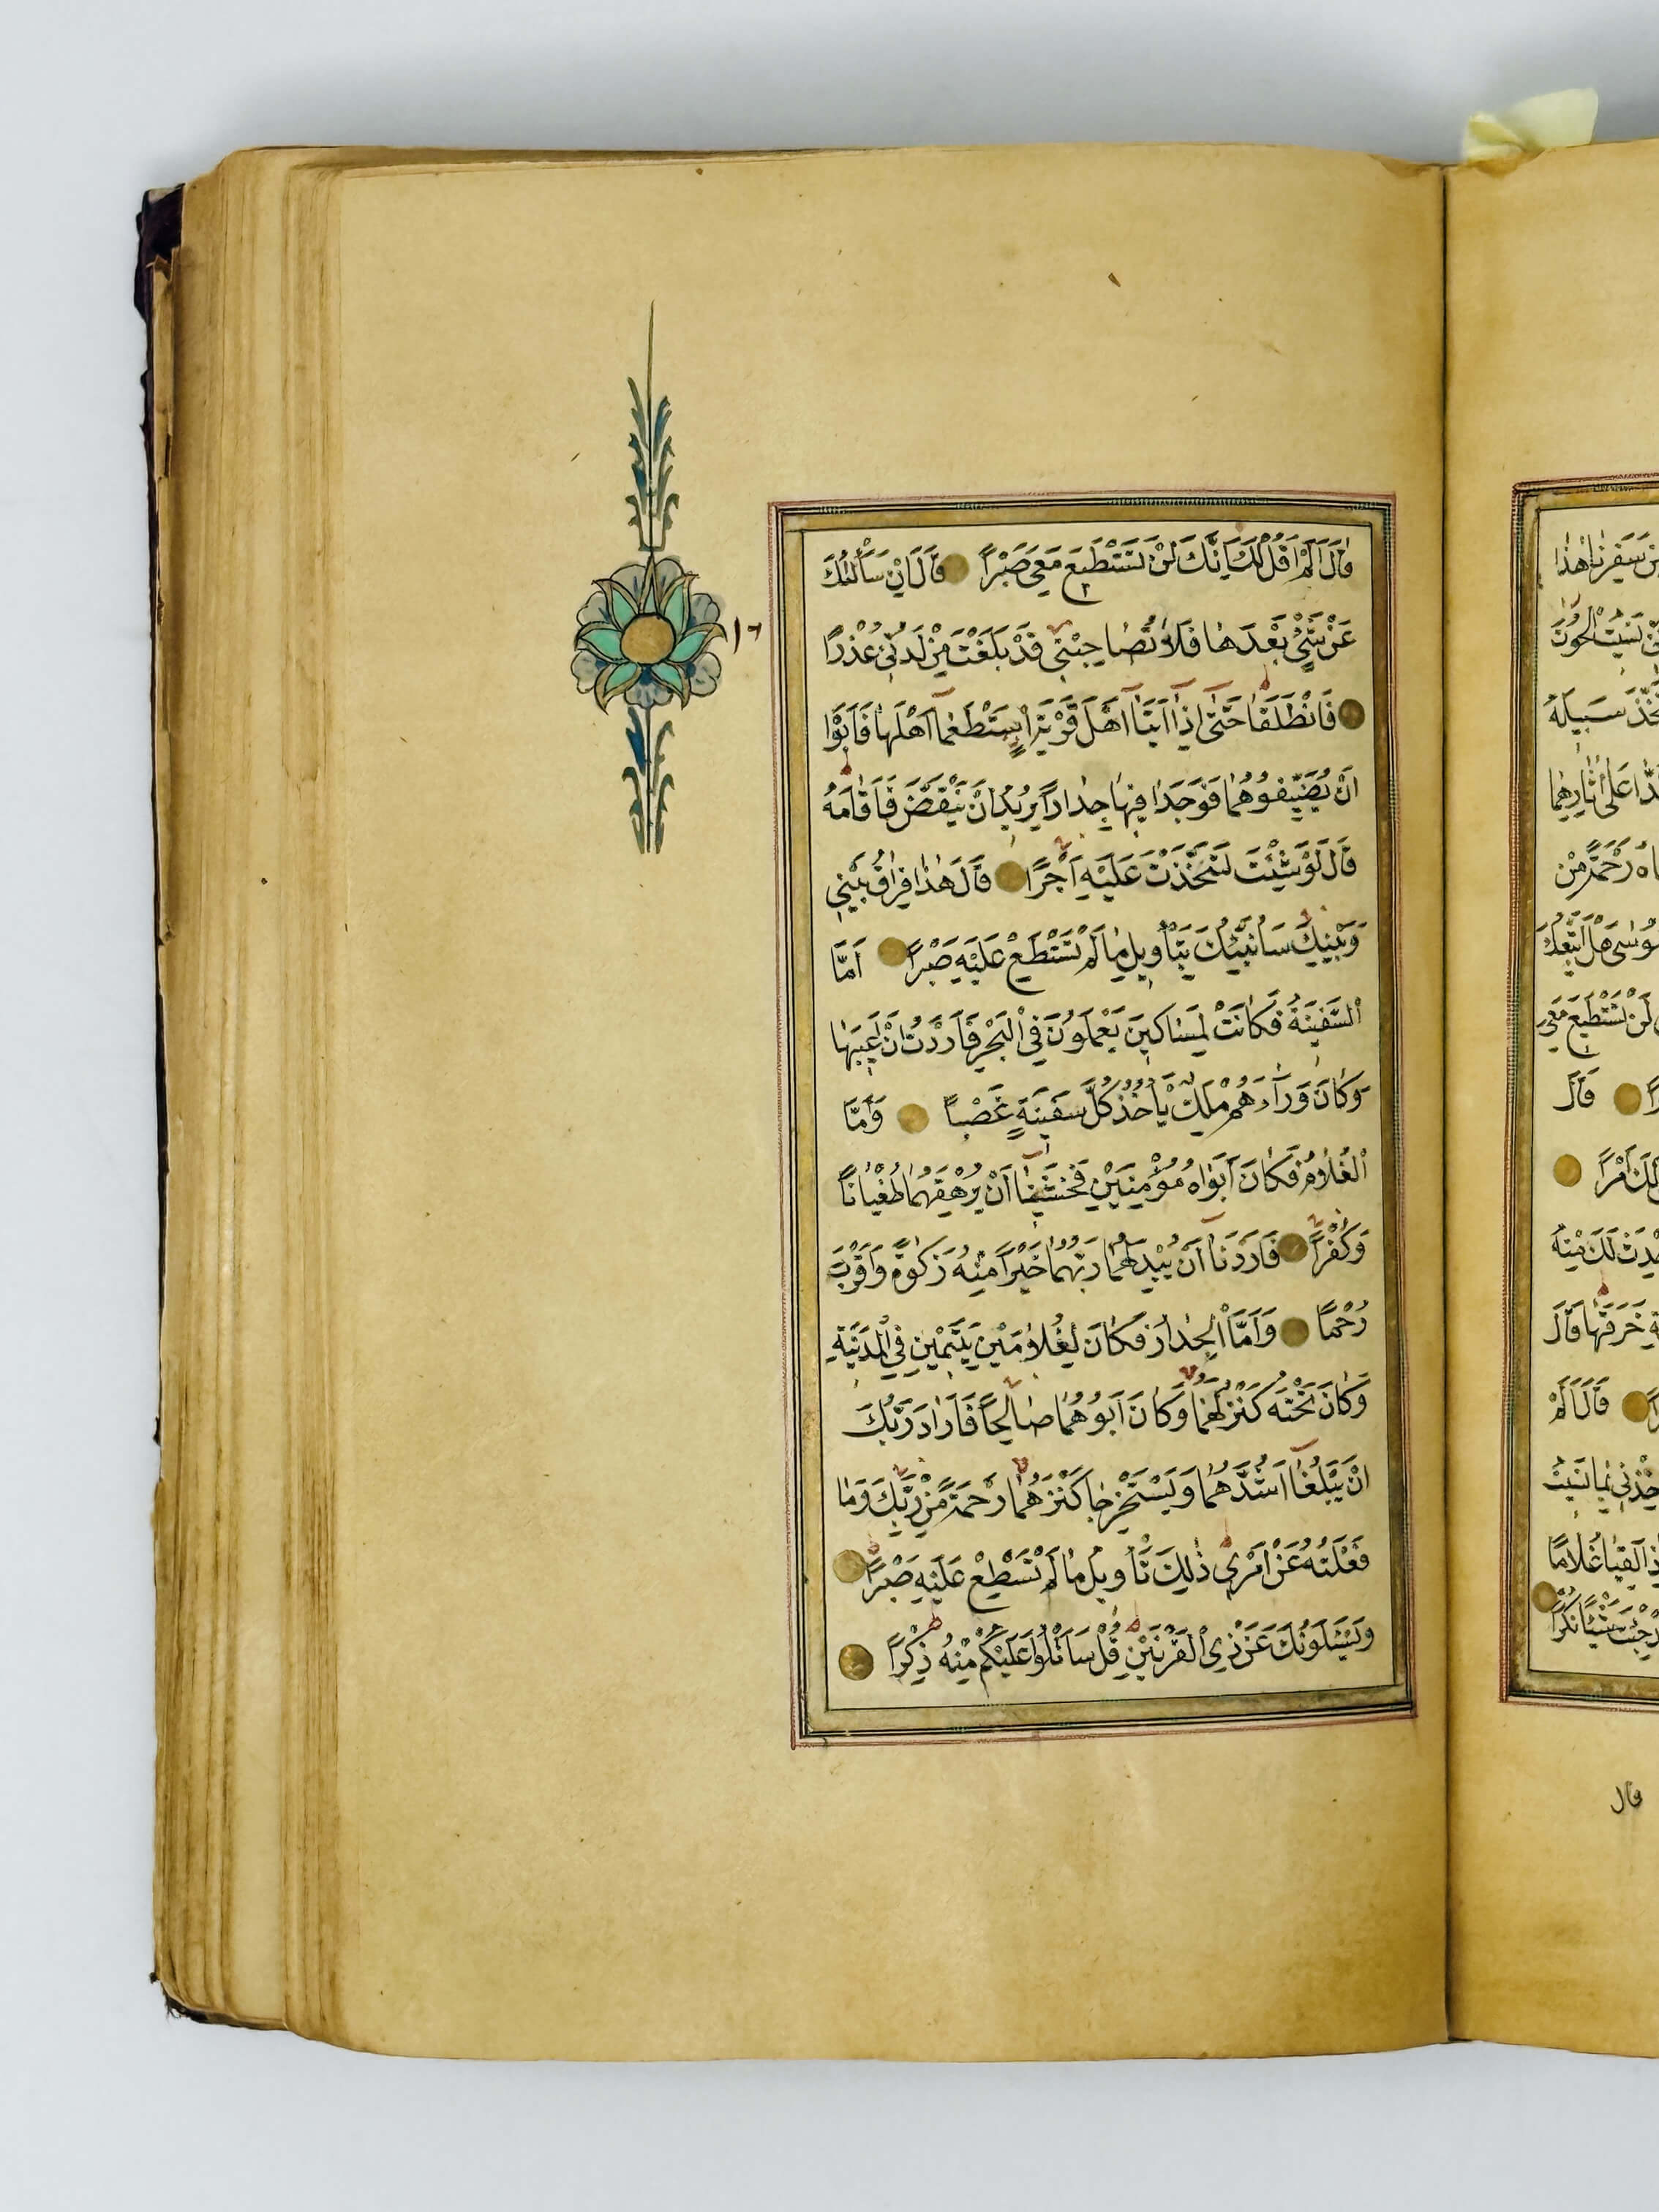 قَالَ اَلَمْ اَقُلْ لَكَ اِنَّكَ لَنْ تَسْتَطٖيعَ مَعِيَ صَبْرًا قَالَ اِنْ سَاَلْتُكَ
عَنْ شَيْءٍ بَعْدَهَا فَلَا تُصَاحِبْنٖى قَدْ بَلَغْتَ مِنْ لَدُنّٖى عُذْرًا
فَانْطَلَقَا حَتّٰى اِذَا اَتَيَا اَهْلَ قَرْيَةٍ اسْتَطْعَمَا اَهْلَهَا فَاَبَوْا
اَنْ يُضَيِّفُوهُمَا فَوَجَدَا فٖيهَا جِدَارًا يُرٖيدُ اَنْ يَنْقَضَّ فَاَقَامَهُ
قَالَ لَوْ شِئْتَ لَتَّخَذْتَ عَلَيْهِ اَجْرًا قَالَ هٰذَا فِرَاقُ بَيْنٖى
وَبَيْنِكَ سَاُنَبِّئُكَ بِتَأْوٖيلِ مَا لَمْ تَسْتَطِعْ عَلَيْهِ صَبْرًا اَمَّا
السَّفٖينَةُ فَكَانَتْ لِمَسَاكٖينَ يَعْمَلُونَ فِى الْبَحْرِ فَاَرَدْتُ اَنْ اَعٖيبَهَا
وَكَانَ وَرَآءَهُمْ مَلِكٌ يَأْخُذُ كُلَّ سَفٖينَةٍ غَصْبًا وَاَمَّا
الْغُلَامُ فَكَانَ اَبَوَاهُ مُؤْمِنَيْنِ فَخَشٖينَا اَنْ يُرْهِقَهُمَا طُغْيَانًا
وَكُفْرًا فَاَرَدْنَا اَنْ يُبْدِلَهُمَا رَبُّهُمَا خَيْرًا مِنْهُ زَكٰوةً وَاَقْرَبَ
رُحْمًا وَاَمَّا الْجِدَارُ فَكَانَ لِغُلَامَيْنِ يَتٖيمَيْنِ فِى الْمَدٖينَةِ
وَكَانَ تَحْتَهُ كَنْزٌ لَهُمَا وَكَانَ اَبُوهُمَا صَالِحًا فَاَرَادَ رَبُّكَ
اَنْ يَبْلُغَا اَشُدَّهُمَا وَيَسْتَخْرِجَا كَنْزَهُمَا رَحْمَةً مِنْ رَبِّكَ وَمَا
فَعَلْتُهُ عَنْ اَمْرٖى ذٰلِكَ تَأْوٖيلُ مَا لَمْ تَسْطِعْ عَلَيْهِ صَبْرًا
وَيَسْـَٔلُونَكَ عَنْ ذِى الْقَرْنَيْنِ قُلْ سَاَتْلُوا عَلَيْكُمْ مِنْهُ ذِكْرًا
سَفَرِنَا هٰذَا
نَسٖيتُ الْحُوتَ
سَبٖيلَهُ
رَحْمَةً مِنْ
هَلْ اَتَّبِعُكَ
لَنْ تَسْتَطٖيعَ مَعِيَ
قَالَ
لَكَ مِنْهُ
خَرَقَهَا قَالَ
قَالَ اَلَمْ
بِمَا نَسٖيتُ
غُلَامًا
جِئْتَ شَيْـًٔا نُكْرًا
قال